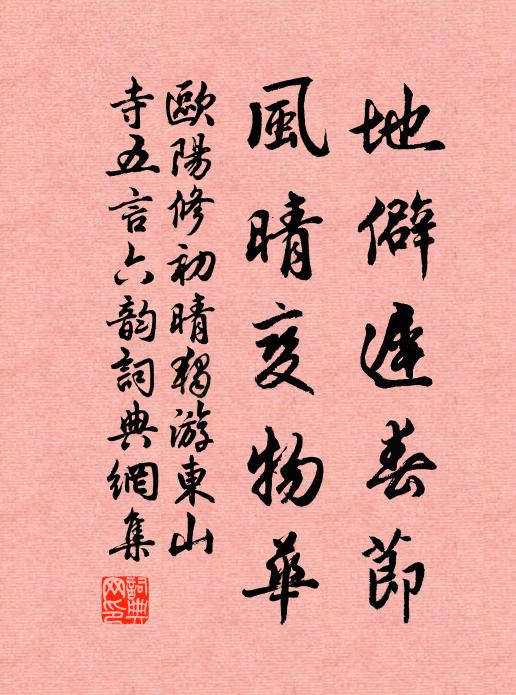 地僻遲春節
風晴变物華
歐陽修初晴獨游東山
寺五言六韵詞典網集